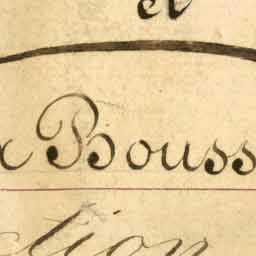 et
Bouss
ction